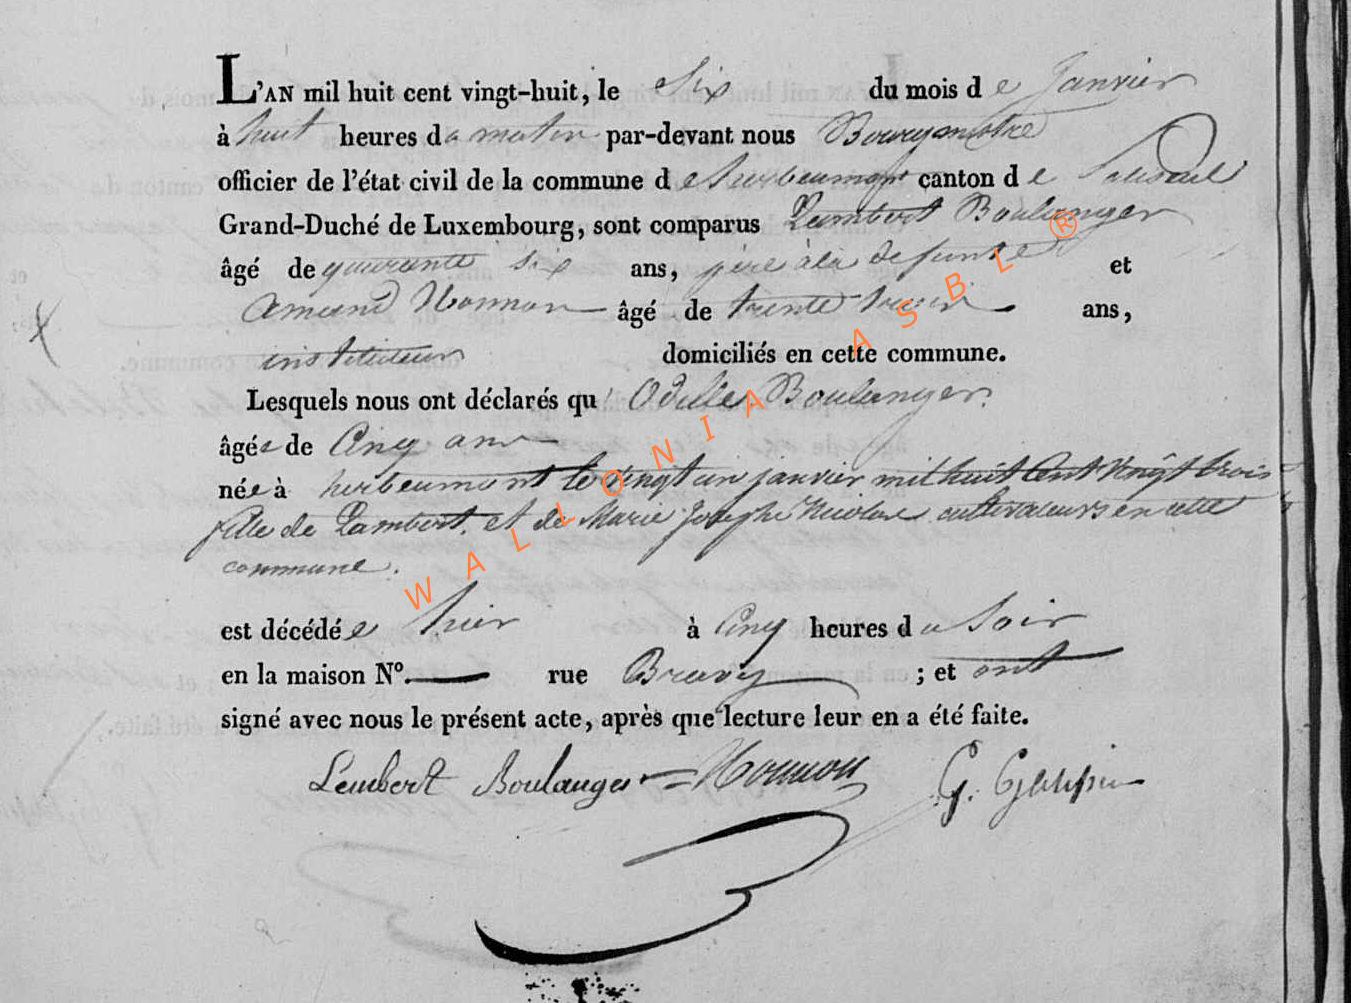 L'AN mil huit cent vingt-huit, le Six du mois de Janvier
à huit heures du matin par-devant nous Bourgmestre
officier de l'état civil de la commune d'herbeumont canton de
Grand-Duché de Luxembourg, sont comparus Lambert Boulanger
âgé de quarante six ans, père à la defunte et
Amand Nonnon âgé de trente ans,
instituteur domiciliés en cette commune.
Lesquels nous ont déclarés qu' Odille Boulanger
âgée de Cinq ans
née à herbeumont le vingt un janvier mil huit Cent vingt trois
fille de Lambert et de Marie Josephe Nicolas cultivateurs en cette
commune.
est décédée hier à Cinq heures du Soir
en la maison N°. rue Bravy ; et ont
signé avec nous le présent acte, après que lecture leur en a été faite.
Lembert Boulanger Nonnon G.
WALLONIA ASBL ®